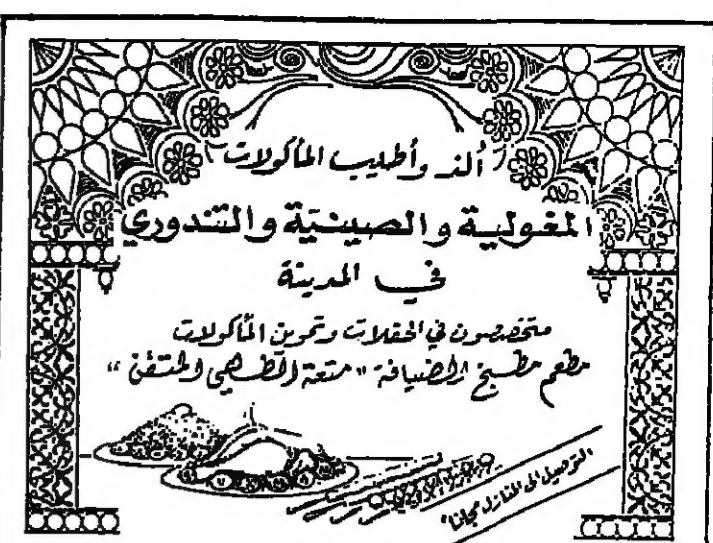 ألذ وأطيب المأكولات
المغولية والصينية والتندوري
في المدينة
متخصصون في الحفلات وتموين المأكولات
مطعم مطبخ الضيافة "متعة الطهي المتقن"
التوصيل الى المنازل مجاناً